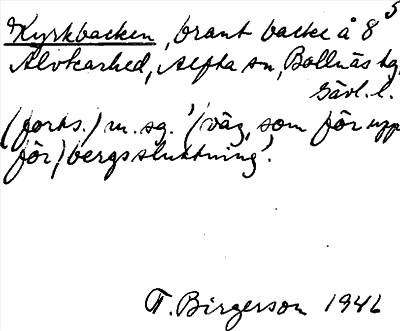 Kyrkbacken, brant backe å 8⁵
Alvkarhed, Alfta sn, Bollnäs tg,
Gävl.l.
(forts.) m. sg. '(väg, som för upp
för) bergssluttning'.
T. Birgerson 1946